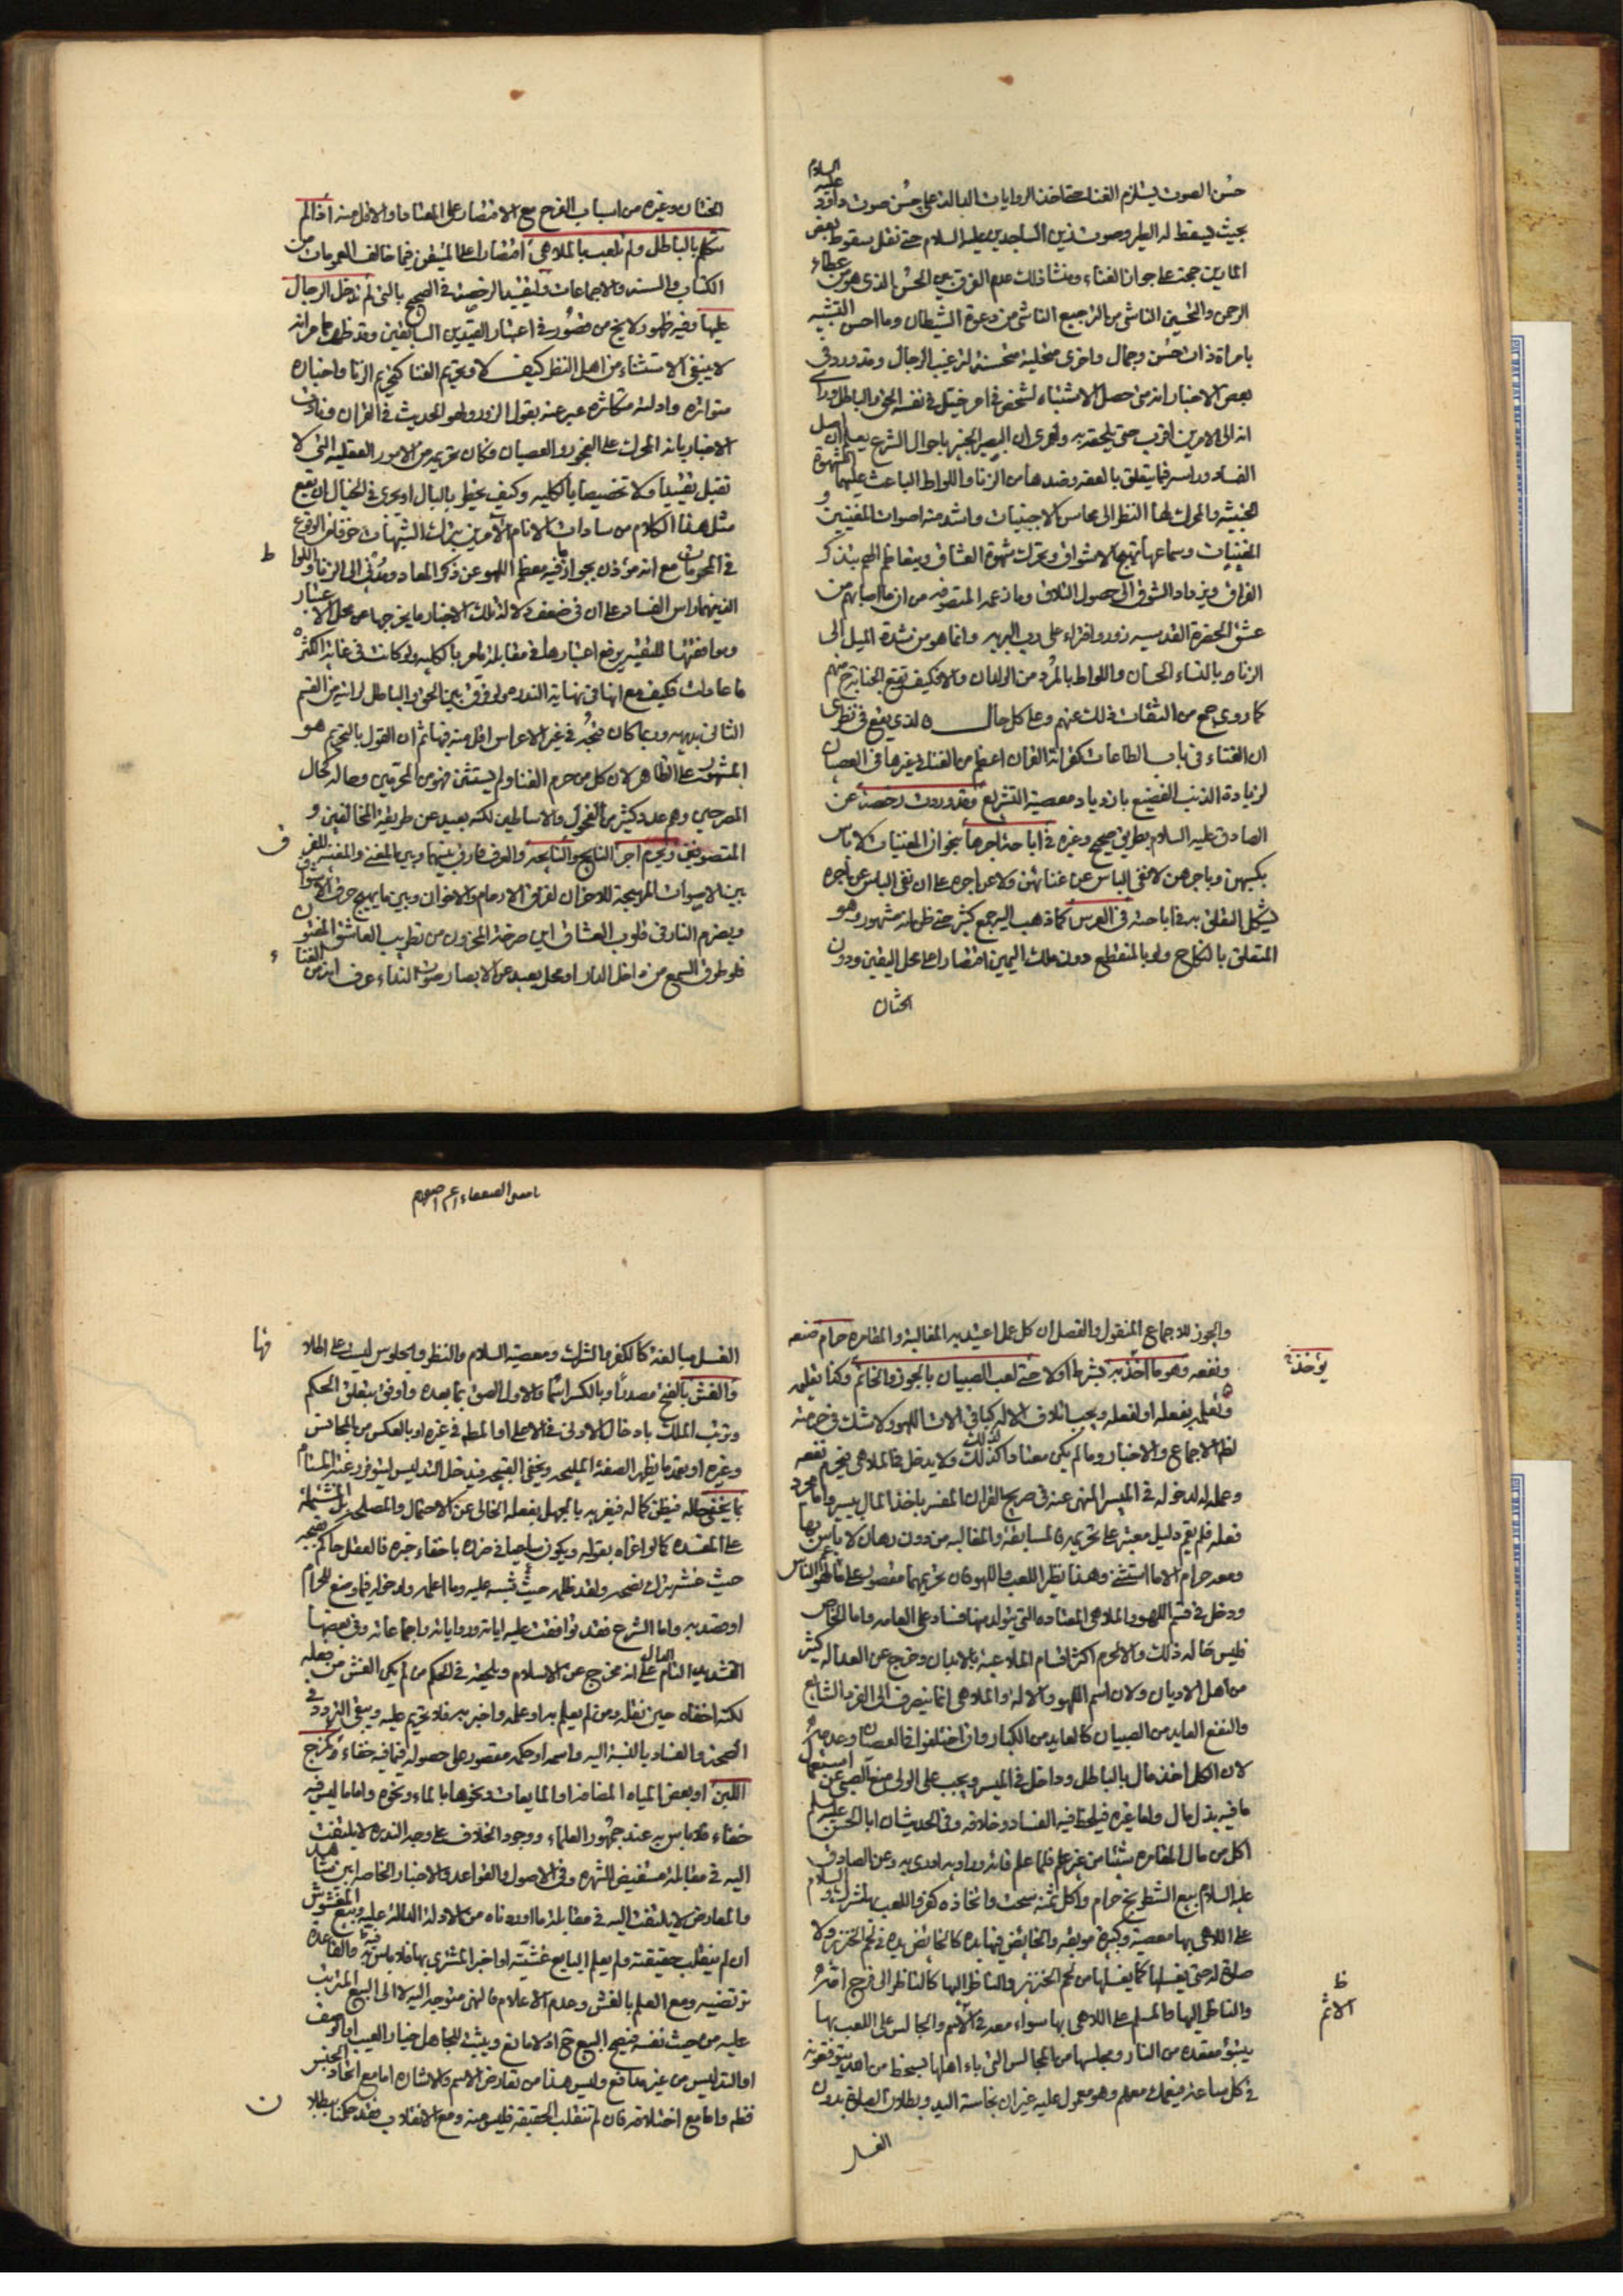 حسن الصوت يستلزم الغناء فاتخذ الروايات الدالة على حسن صوت داود عليه السلام
بحيث يسقط له الطير وصوت زين الساجدين عليه السلام حتى نقل سقوط بعض
المارين حجة على جواز الغناء ومنشأ ذلك عدم الفرق بين الحسن الذي هو من عطاء
الرحمن والتحسين الناشي من الترجيع الناشي من دعوة الشيطان وما احسن التشبيه
بامراة ذات حسن وجمال واخرى متحلية متحسنة لترغيب الرجال وقد ورد في
بعض الاخبار انه متى حصل الاشتباه لشخص في امر خيل في نفسه الحق والباطل وراى
انه الى الامرين اقرب حتى يلحقه به ولعمري ان البصير الخبير باحوال الشرع يعلم ان اصل
الفساد وراسه فيما يتعلق بالعفة وضدها من الزنا واللواط الباعث عليهما الشهوة
الخبيثة والمحرك لها النظر الى محاسن الاجنبيات واشد منه اصوات المغنيين و
المغنيات وسماعها تهيج الاشواق وتحرك شهوة العشاق ويتعاظم الهم بتذكر
الفراق ويزداد الشوق الى حصول التلاق وما زعمه المتصوفه من ان ما اصابهم من
عشق الحضرة القدسيه زور وافتراء على رب البريه وانما هو من شدة الميل الى
الزنا بالنساء الحسان واللواط بالمرد من الولدان والا فكيف تقع الجنابة منهم
كما روى جمع من الثقات ذلك عنهم وعلى كل حال فالذي يقع في نظري
ان الغناء في باب الطاعات كقراءة القران اعظم من الغناء في غيرها في العصيان
لزيادة الذنب الفضيع بازدياد معصية التشريع وقد وردت رخصة عن
الصادق عليه السلام بطريق صحيح وغيره في اباحة اجرها بجواز المغنيات لا باس
بكسبهن وباجرهن لا نفى الباس عن غنائهن ولا عن اجره على ان نفى الباس عن اجره
يشكل التعلق به في اباحته في العرس كما ذهب اليه جمع كثير حتى ظن انه مشهور وهو
المتعلق بالنكاح ولو بالمنقطع دون ملك اليمين اقتصارا على محل اليقين ودون
الختان
الختان وغيره من اسباب الفرح مع الاقتصار على المعتاد او الاقل منه اذا لم
تتكلم بالباطل ولم تلعب بالملاهي اقتصارا على المتيقن فيما خالف العمومات من
الكتاب والسنه والاجماعات ولتقييد الرخصة في الصحيح بالتي لم تدخل الرجال
عليها وفيه ظهور ولا يخ من قصور في اعتبار القيدين السابقين وقد ظهر مما مر انه
لا ينبغي الاستثناء من اهل النظر كيف لا وتحريم الغنا كتحريم الزنا واخباره
متواتره وادلته متكاثره عبر عنه بقول الزور ولهو الحديث في القران ونادت
الاخبار بانه المحرك على الفجور والعصيان فكان تحريمه من الامور العقليه التي لا
تقبل تقييدا ولا تخصيصا بالكليه وكيف يخطر بالبال او يجرى في الخيال ان يقع
مثل هذا الكلام من سادات الانام الآمرين بترك الشبهات خوفا من الوقوع
في المحرمات مع انه مؤذن بجواز ما فيه معظم اللهو عن ذكر المعاد ومؤد الى الزنا واللوا ط
الذين هما راس الفساد على ان في ضعف دلالة تلك الاخبار ما يخرجها عن محل الاعتبار
وموافقتها للتقيه يرفع اعتبارها في مقابلة ما مر بالكليه ولو كانت في غاية الكثره
ما عادلت فكيف مع انها في نهاية الندره ولو فرق بين الحق والباطل لرايته من القسم
الثاني بديهيه وربما كان فجور في غير الاعراس اقل منه فيها ثم ان القول بالتحريم هو
المشهور على الظاهر لان كل من حرم الغنا ولم يستثن فهو من المحرمين وحاله كحال
المصرحين وهم عدد كثير من الفحول والاساطين لكنه بعيد عن طريقة المخالفين و
المتصوفين ويحرم اجر النايح والنايحه والعرف فارق بينهما وبين المغني والمغنيه للفر ق
بين الاصوات المهيجة للاحزان لفراق الارحام والاخوان وبين ما يهيج حرقة الاشواق
ويضرم النار في قلوب العشاق اين صرخة المحزون من تطريب العاشق المفتون
فلو طرق السمع من داخل الدار او محل بعيد عن الابصار صوت النداء عرف انه من الغناء
وللجوز للاجماع المنقول والفصل ان كل عمل اعتيد به المغالبة والمقامره حرام صنعه
يؤخذ
ونفعه وهو ما اخذ به بشرط او لا حتى لعب الصبيان بالجوز والخاتم وكذا تعلمه
وتعليمه بفعله او لفعله ويجب اتلاف الاله كباقي الات اللهو ولا شك في حرمته
لظ الاجماع والاخبار وما لم يكن معتادا كذلك ولا يدخل في الملاهي فيحرم نفعه
وعمله لدخوله في الميسر المنهي عنه في صريح القران المفسر باخذ المال بيسر واما مجرد
فعله فلم يقم دليل معتبر على تحريمه فالمسابقة والمغالبه من دون رهان لا باس بها
ومعه حرام الا ما استثنى وهذا نظير اللعب واللهو فان تحريمهما مقصور على ما الهى الناس
ودخل في قسم اللهو والملاهي المعتاده التي يتولد منها فساد على العامه واما الخاص
فليس حاله ذلك والا لحرم اكثر اقسام الملاعبة بالابدان وخرج عن العداله كثير
من اهل الاديان ولان اسم اللهو والالة والملاهي انما ينصرف الى الفرد الشايع
والنفع العايد من الصبيان كالعايد من الكبار وان اختلفوا في العصيان وعدمه
لان الكل اخذ مال بالباطل وداخل في الميسر ويجب على الولي منع الصبي عن استعمال
ما فيه بذل مال واما غيره فيلحظ فيه الفساد وخلافه وفي الحديث ان ابا الحسن عليه السلم
اكل من مال المقامره شيئا من غير علم فلما علم قاءه وعن الصادق
عليه السلام بيع الشطرنج حرام واكل ثمنه سحت واتخاذه كفر واللعب بها شرك والسلام
على اللاهي بها معصية وكبيرة موبقه والخايض فيها يده كالخايض يده في لحم الخنزير ولا
صلوة له حتى يغسلها كما يغسلها من لحم الخنزير والناظر اليها كالناظر الى فرج امه
ظ
الاثم
والناظر اليها والمسلم على اللاهي بها سواء معه في الاثم والجالس على اللعب بها
يتبوء مقعده من النار ومجلسها من المجالس التي باء اهلها بسخط من الله يتوقعونه
في كل ساعة فيعمك معهم وهو معمول عليه غير ان نجاسة اليد وبطلان الصلوة بدون
الغسل
الغسل مبالغة كالكفر والشرك ومعصية السلام والنظر والجلوس ليست على اطلاقها
والغش بالفتح مصدرا وبالكسر اسما والاول الصق بما بعده واوفق بتعلق الحكم
وترتب الملك بادخال الادنى في الاعلى او المطه في غيره او بالعكس من المجانس
وغيره او بعمد ما يظهر الصفة المليحه ويخفي القبيحه فيدخل التدليس
بما يخفى حاله فيظن كماله فيغريه بالجهل بفعله الخالي عن الاحتمال والمصلحه بل المشتملة
على المفسده كما لو اغراه بقوله ويكون ساعيا في ضرره باخفاء خبره فالعقل حاكم بقبحه
حيث غشه بترك نصحه ولقد ظلمه حيث شبه عليه وما اعلمه ولدخوله فيما وضع للحرام
او قصد به واما الشرع فقد توافقت عليه اياته ورواياته واجماعاته وفي بعضها
التشديد التام الدال على انه مخرج عن الاسلام ويلحقه في الحكم من لم يكن الغش من فعله
لكنه اخفاه حين نقله ومن لم يعلم به او علمه واخبر به فلا تحريم عليه ويبقى التردد في
الصحة والفساد بالنسبة اليه واسمه او حكمه مقصور على حصوله فيما فيه خفاء كمزج
اللبن او بعض المياه المضافه او المايعات ونحوها بالماء ونحوه واما ما ليس فيه
خفاء فلا باس به عند جمهور العلماء ووجود الخلاف على وجه الندره لا يلتفت
اليه في مقابلة مستفيض الشهره وفي الاصول والقواعد والاخبار الخاصه ابين شاهد
والمعارض لا يلتفت اليه في مقابلة ما اوردناه من الادلة الدالة عليه وبيع المغشوش
ان لم ينقلب حقيقته ولم يعلم البايع غشيته او اخبر المشتري بها فلا باس فيه والقاعده
تقتضيه ومع العلم بالغش وعدم الاعلام فالنهي متوجه اليه لا الى البيع المترتب
عليه من حيث نفسه فيصح البيع ح اذ لا مانع ويثبت للجاهل خيار العيب او الوصف
او التدليس من غير مدافع وليس هذا من تعارض الاسم والاشاره اما مع اتحاد الجنس
فظه واما مع اختلافه فان لم تنقلب الحقيقه فليس منه ومع الانقلاب فقد حكمنا ببطلان